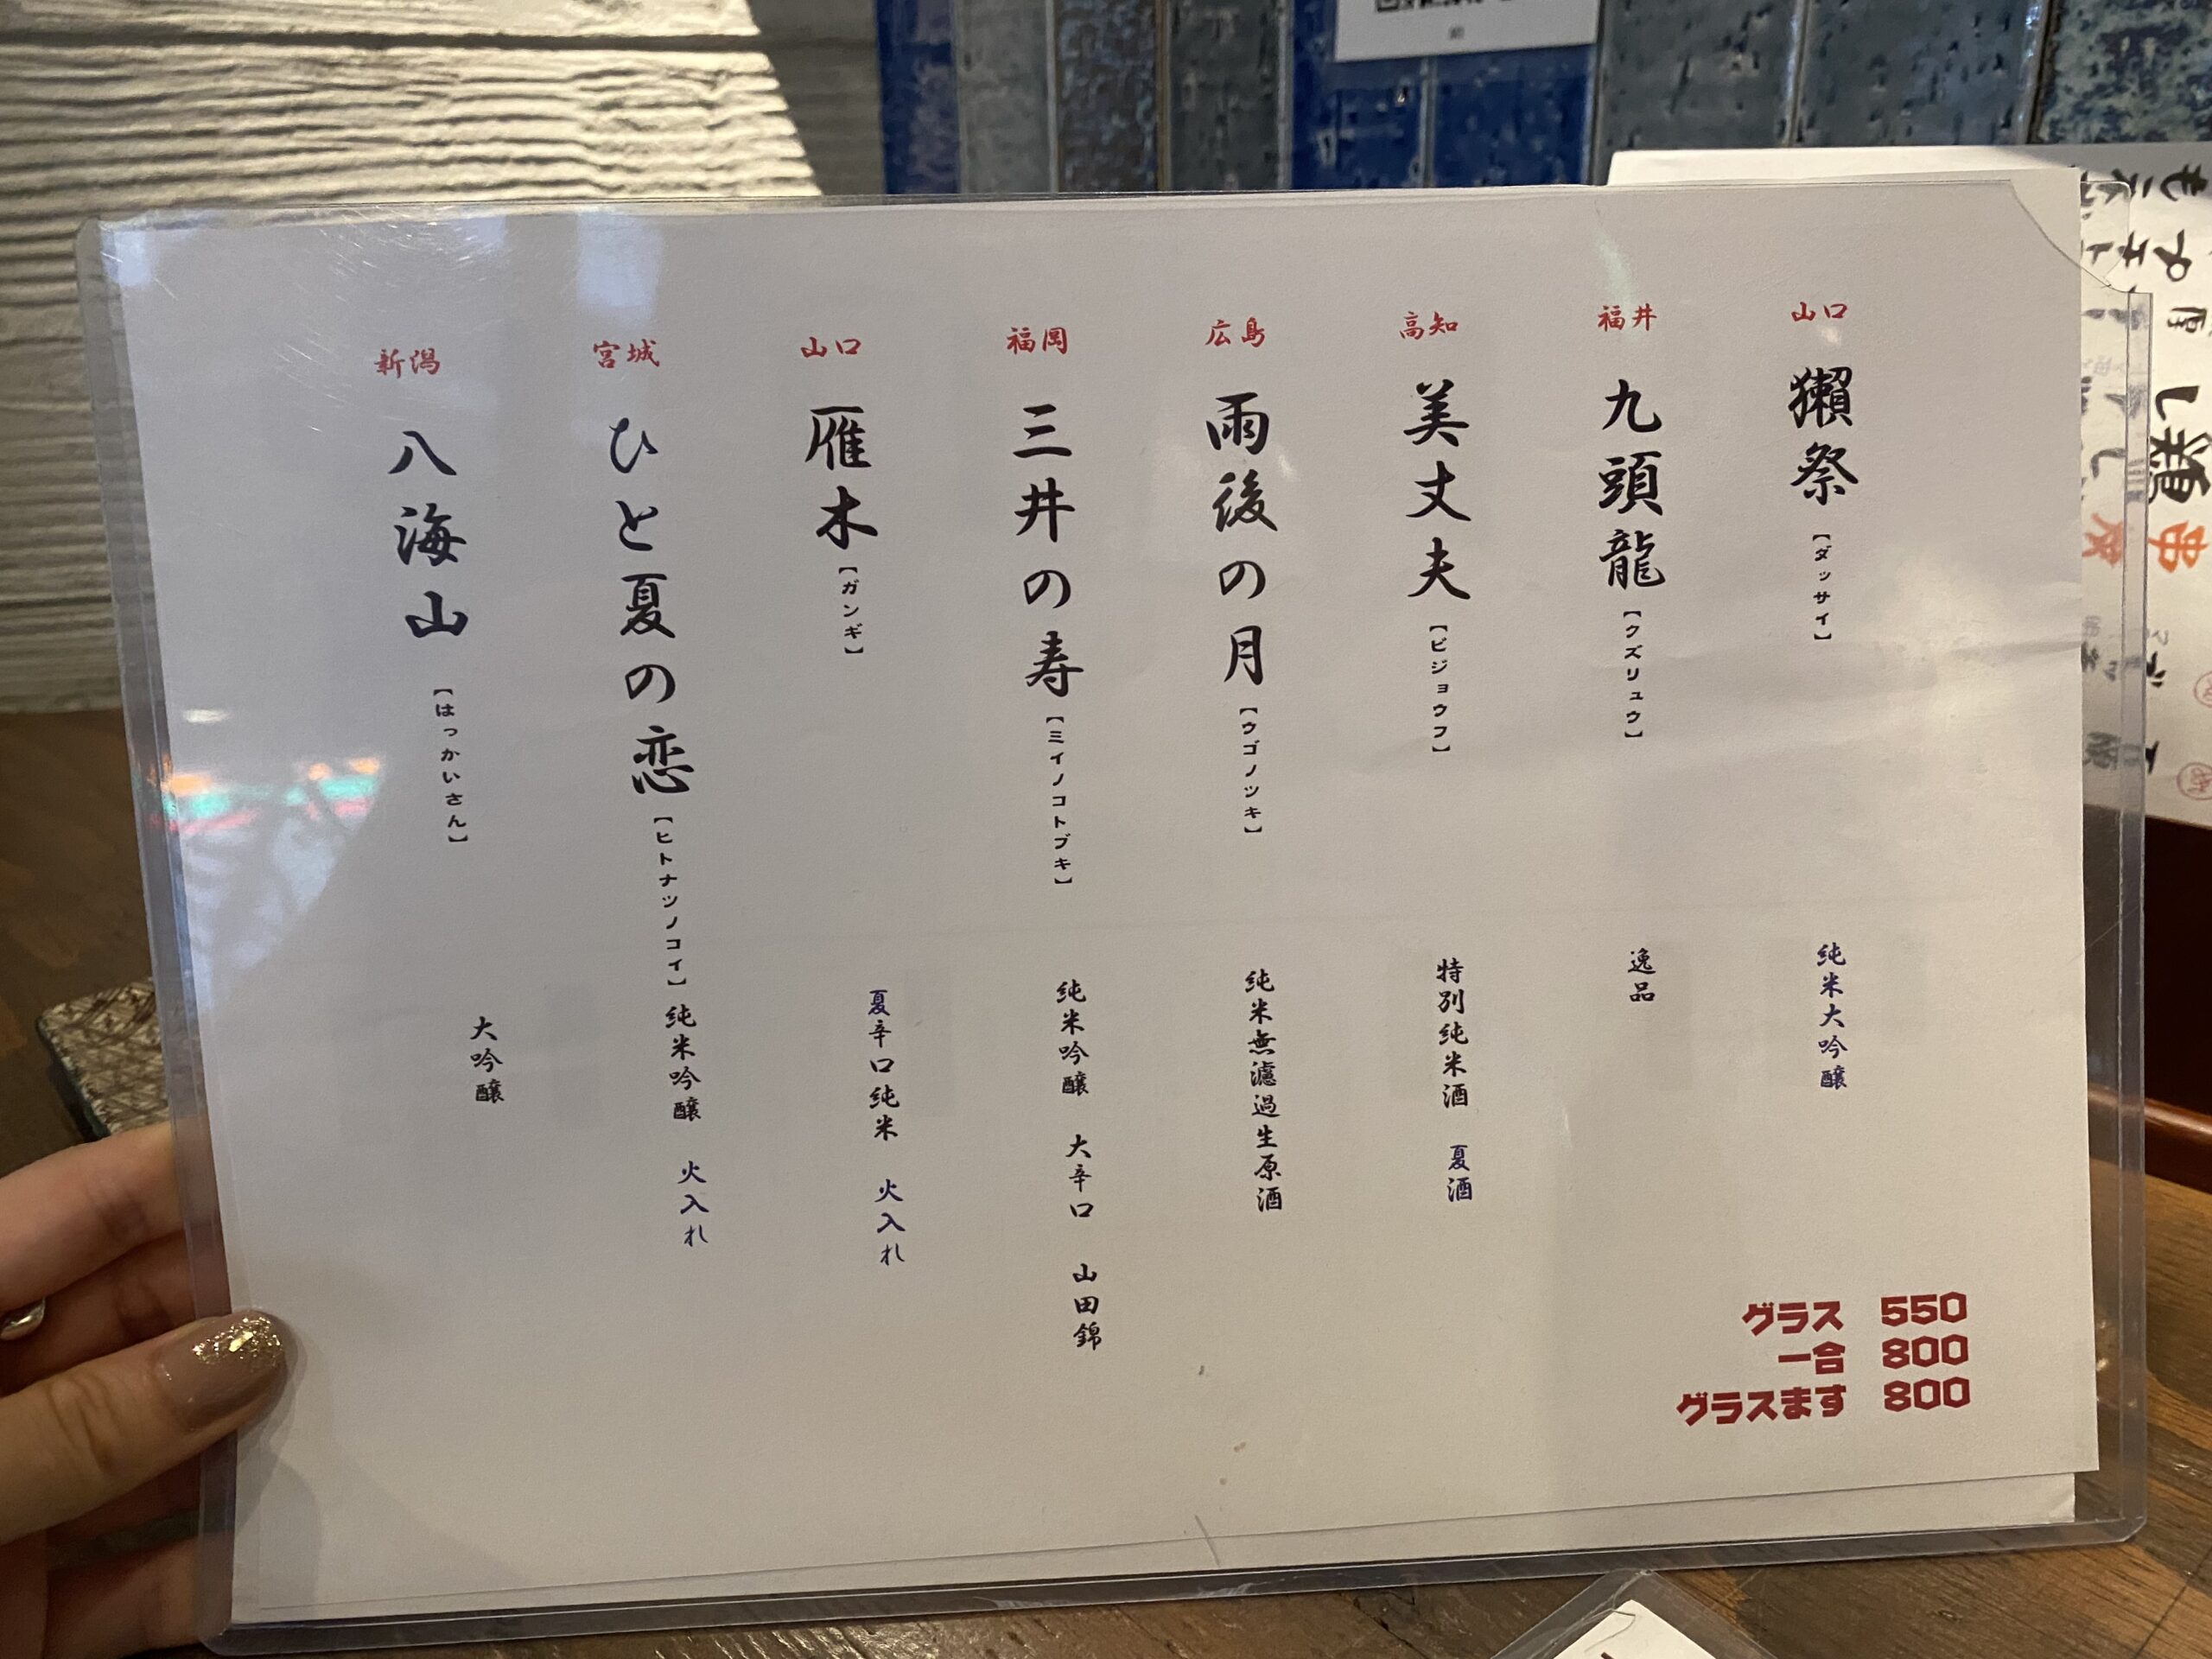 山口
獺祭【ダッサイ】
純米大吟醸
福井
九頭龍【クズリュウ】
逸品
高知
美丈夫【ビジョウフ】
特別純米酒 夏酒
広島
雨後の月【ウゴノツキ】
純米無濾過生原酒
福岡
三井の寿【ミイノコトブキ】
純米吟醸 大辛口 山田錦
山口
雁木【ガンギ】
夏辛口純米 火入れ
宮城
ひと夏の恋【ヒトナツノコイ】
純米吟醸 火入れ
新潟
八海山【はっかいさん】
大吟醸
グラス 550
一合 800
グラスます 800